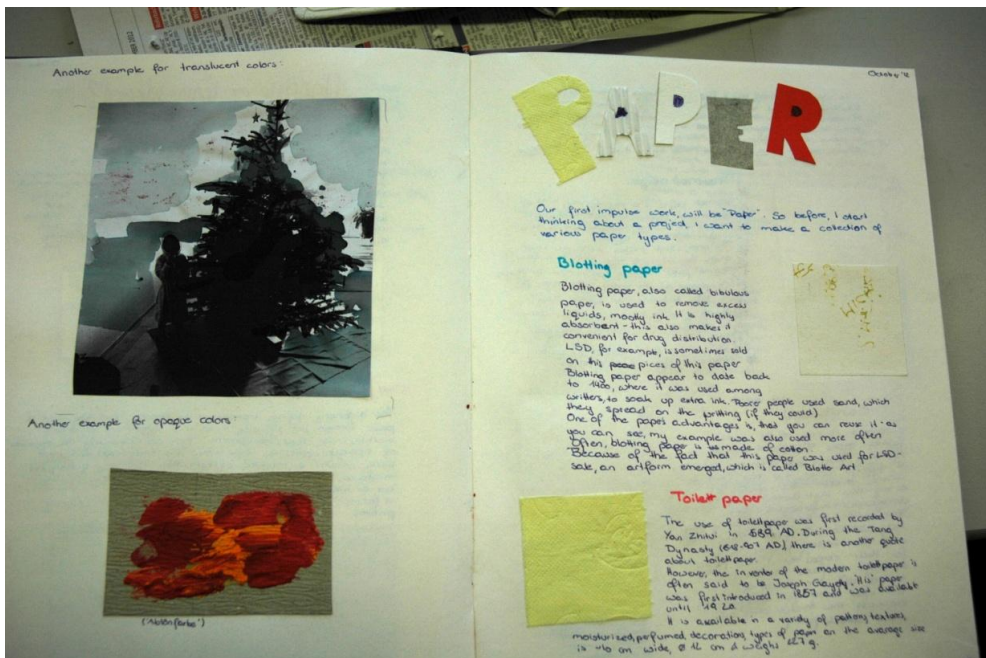 Another example for translucent colors:
Another example for opaque colors:
October '12
PAPER
Our first impulse work, will be "Paper". So before, I start
thinking about a project, I want to make a colection of
various paper types.
Blotting paper
Blotting paper, also called bibulous
paper, is used to remove excess
liquids, mostly ink. It is highly
absorbant - this also makes it
convenient for drug distribution.
LSD, for example, is sometimes sold
on this pices of this paper
Blotting paper appear to date back
to 1400, where it was used among
writters, to soak up extra ink. Poorer people used sand, which
they spread on the writting (if they could)
One of the papes advantages is, that you can reuse it - as
you can see, my example was also used more often
Often, blotting paper is made of cotton.
Because of the fact that this paper was used for LSD-
sale, an artform emerged, which is called Blotto Art
Toilett paper
The use of toilettpaper was first recorded by
Yan Zhitui in 589 AD. During the Tang
Dynasty (618-907 AD) there is another quote
about toilettpaper.
However, the inventor of the modern toilettpaper is
often said to be Joseph Gayety. 'His' paper
was first introduced in 1857 and was available
until
It is available in a variety of pattons, textures,
moisturized, perfumed, decorations, types of paper on the average size
is cm wide, 12 cm & weighs g.